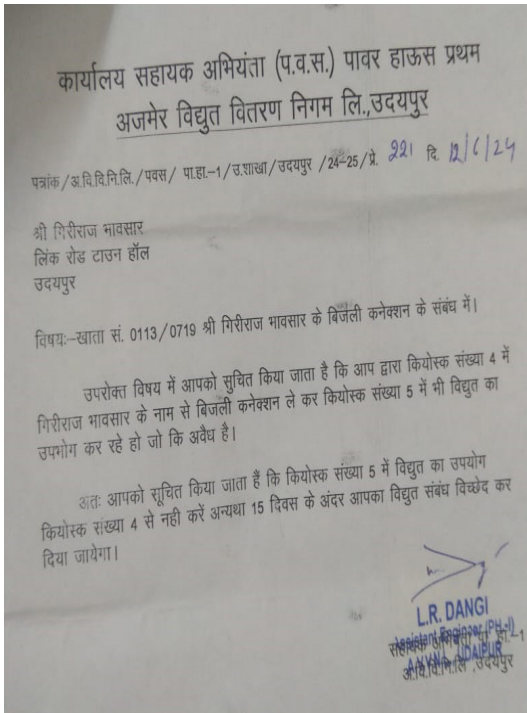 कार्यालय सहायक अभियंता (प.व.स.) पावर हाऊस प्रथम
अजमेर विद्युत वितरण निगम लि.,उदयपुर
पत्रांक/अ.वि.वि.नि.लि./पवस/ पा.हा.-1/उ.शाखा/उदयपुर /24-25/प्रे. 221 दि. 12/6/24
श्री गिरीराज भावसार
लिंक रोड टाउन हॉल
उदयपुर
विषय:-खाता सं. 0113/0719 श्री गिरीराज भावसार के बिजली कनेक्शन के संबंध में।
उपरोक्त विषय में आपको सुचित किया जाता है कि आप द्वारा कियोस्क संख्या 4 में
गिरीराज भावसार के नाम से बिजली कनेक्शन ले कर कियोस्क संख्या 5 में भी विद्युत का
उपभोग कर रहे हो जो कि अवैध है।
अतः आपको सूचित किया जाता हैं कि कियोस्क संख्या 5 में विद्युत का उपयोग
कियोस्क संख्या 4 से नही करें अन्यथा 15 दिवस के अंदर आपका विद्युत संबंध विच्छेद कर
दिया जायेगा।
L.R. DANGI
Assistant Engineer (PH-I)
सहायक अभियंता पा.हा.-1
UDAIPUR
अ.वि.वि.नि.लि.,उदयपुर